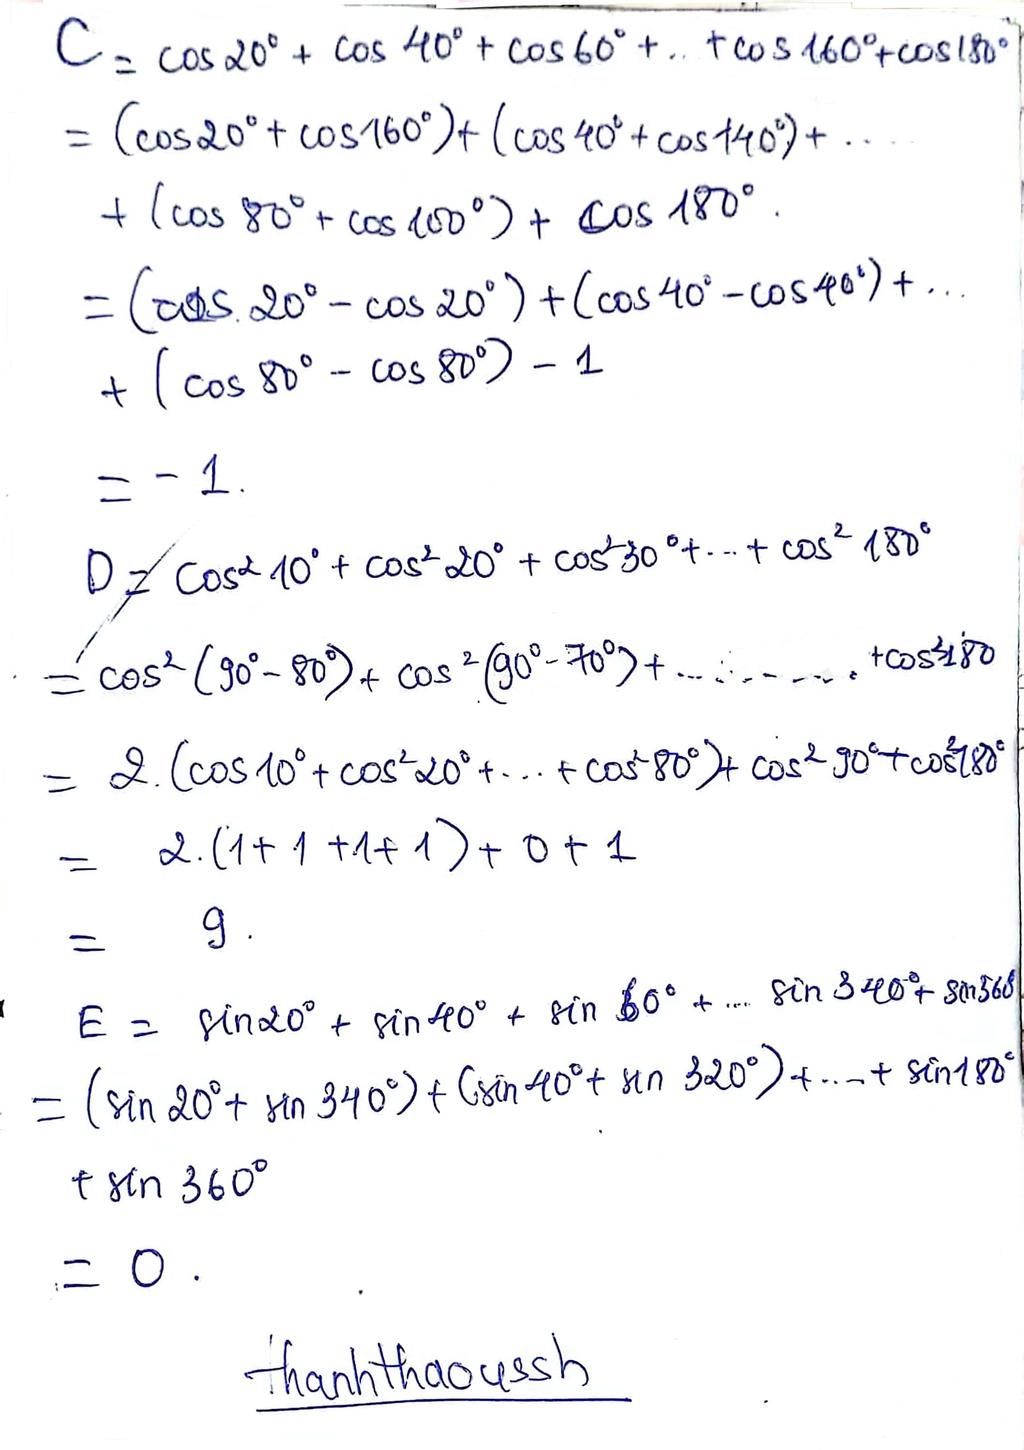 C = cos 20° + cos 40° + cos 60° + .. + cos 160° + cos 180°
= (cos 20° + cos 160°) + (cos 40° + cos 140°) + ....
+ (cos 80° + cos 100°) + cos 180°.
= (cos. 20° - cos 20°) + (cos 40° - cos 40°) + ...
+ (cos 80° - cos 80°) - 1
= - 1.
D = cos² 10° + cos² 20° + cos² 30° + ... + cos² 180°
= cos² (90° - 80°) + cos² (90° - 70°) + ......... + cos² 180
= 2. (cos 10° + cos² 20° + ... + cos² 80°) + cos² 90° + cos² 180°
= 2. (1 + 1 + 1 + 1) + 0 + 1
= 9.
E = sin 20° + sin 40° + sin 60° + ... sin 340° + sin 360
= (sin 20° + sin 340°) + (sin 40° + sin 320°) + ... + sin 180°
+ sin 360°
= 0.
thanhthaoussh